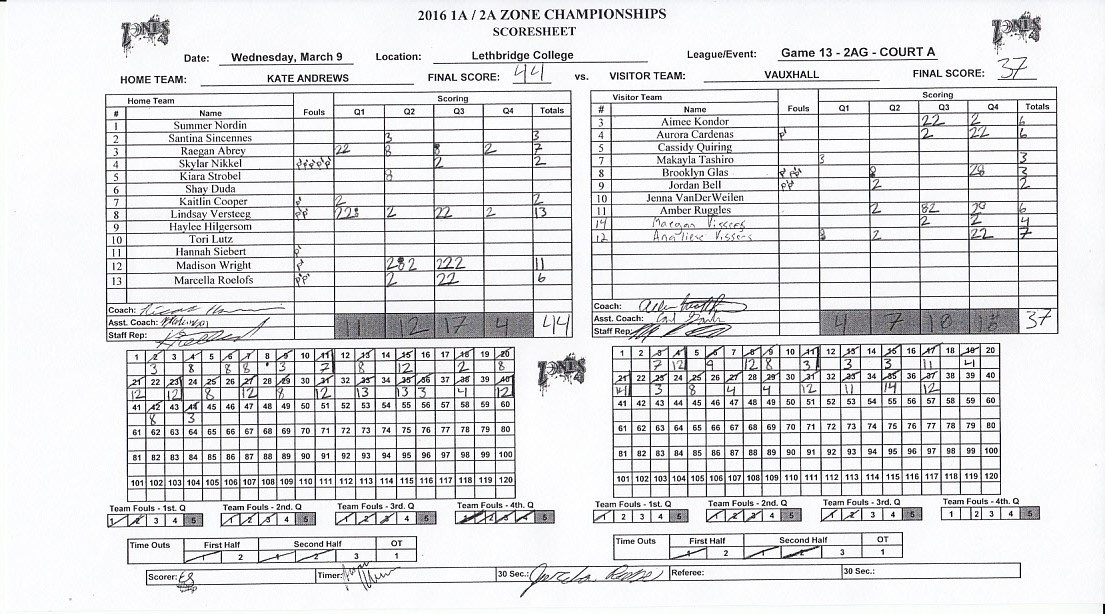 2016 1A / 2A ZONE CHAMPIONSHIPS
SCORESHEET
ZONES
ZONES
Date: Wednesday, March 9 Location: Lethbridge College League/Event: Game 13 - 2AG - COURT A
HOME TEAM: KATE ANDREWS FINAL SCORE: 44 vs. VISITOR TEAM: VAUXHALL FINAL SCORE: 37
Home Team Scoring
# Name Fouls Q1 Q2 Q3 Q4 Totals
1 Summer Nordin
2 Santina Sincennes 3 3
3 Raegan Abrey 22 2 7
4 Skylar Nikkel 2 2
5 Kiara Strobel
6 Shay Duda
7 Kaitlin Cooper 2 2
8 Lindsay Versteeg 2 22 2 13
9 Haylee Hilgersom
10 Tori Lutz
11 Hannah Siebert
12 Madison Wright 222 11
13 Marcella Roelofs 2 22 6
Coach:
Asst. Coach:
Staff Rep:
11 12 17 4 44
Visitor Team Scoring
# Name Fouls Q1 Q2 Q3 Q4 Totals
3 Aimee Kondor 22 2 6
4 Aurora Cardenas 2 22 6
5 Cassidy Quiring
7 Makayla Tashiro 3 3
8 Brooklyn Glas 3
9 Jordan Bell 2 2
10 Jenna VanDerWeilen
11 Amber Ruggles 2 6
14 Maegan Vissers 2 2 4
12 Analiese Vissers 2 22 7
Coach:
Asst. Coach:
Staff Rep:
4 7 37
1 2 3 4 5 6 7 8 9 10 11 12 13 14 15 16 17 18 19 20
3 8 8 8 3 8 12 2 8
21 22 23 24 25 26 27 28 29 30 31 32 33 34 35 36 37 38 39 40
12 12 8 12 8 12 13 13 3 4 12
41 42 43 44 45 46 47 48 49 50 51 52 53 54 55 56 57 58 59 60
8 3
61 62 63 64 65 66 67 68 69 70 71 72 73 74 75 76 77 78 79 80
81 82 83 84 85 86 87 88 89 90 91 92 93 94 95 96 97 98 99 100
101 102 103 104 105 106 107 108 109 110 111 112 113 114 115 116 117 118 119 120
ZONES
1 2 3 4 5 6 7 8 9 10 11 12 13 14 15 16 17 18 19 20
7 12 9 12 8 3 3 3 11 4
21 22 23 24 25 26 27 28 29 30 31 32 33 34 35 36 37 38 39 40
14 3 8 4 4 12 11 14 12
41 42 43 44 45 46 47 48 49 50 51 52 53 54 55 56 57 58 59 60
61 62 63 64 65 66 67 68 69 70 71 72 73 74 75 76 77 78 79 80
81 82 83 84 85 86 87 88 89 90 91 92 93 94 95 96 97 98 99 100
101 102 103 104 105 106 107 108 109 110 111 112 113 114 115 116 117 118 119 120
Team Fouls - 1st. Q Team Fouls - 2nd. Q Team Fouls - 3rd. Q Team Fouls - 4th. Q
1 2 3 4 5 1 2 3 4 5 1 2 3 4 5 1 2 3 4 5
Team Fouls - 1st. Q Team Fouls - 2nd. Q Team Fouls - 3rd. Q Team Fouls - 4th. Q
1 2 3 4 5 1 2 3 4 5 1 2 3 4 5 1 2 3 4 5
Time Outs First Half Second Half OT
1 2 1 2 3 1
Time Outs First Half Second Half OT
1 2 1 2 3 1
Scorer: Timer: 30 Sec.: Referee: 30 Sec.: